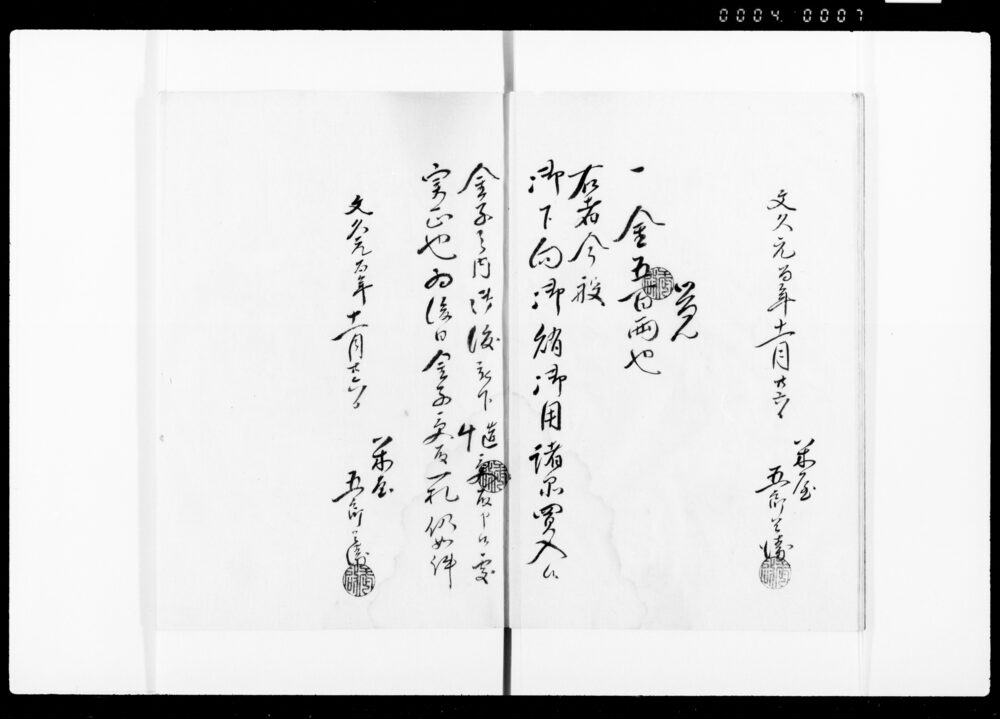 0004 0007
文久元酉年十一月廿六日
米屋
五郎兵衛
覚
一金五百両也
右者今般
御下向御賄御用諸品買入候
金子之内 慥
実正也為後日金子受取一札仍如件
文久元酉年十一月廿六日
米屋
五郎兵衛